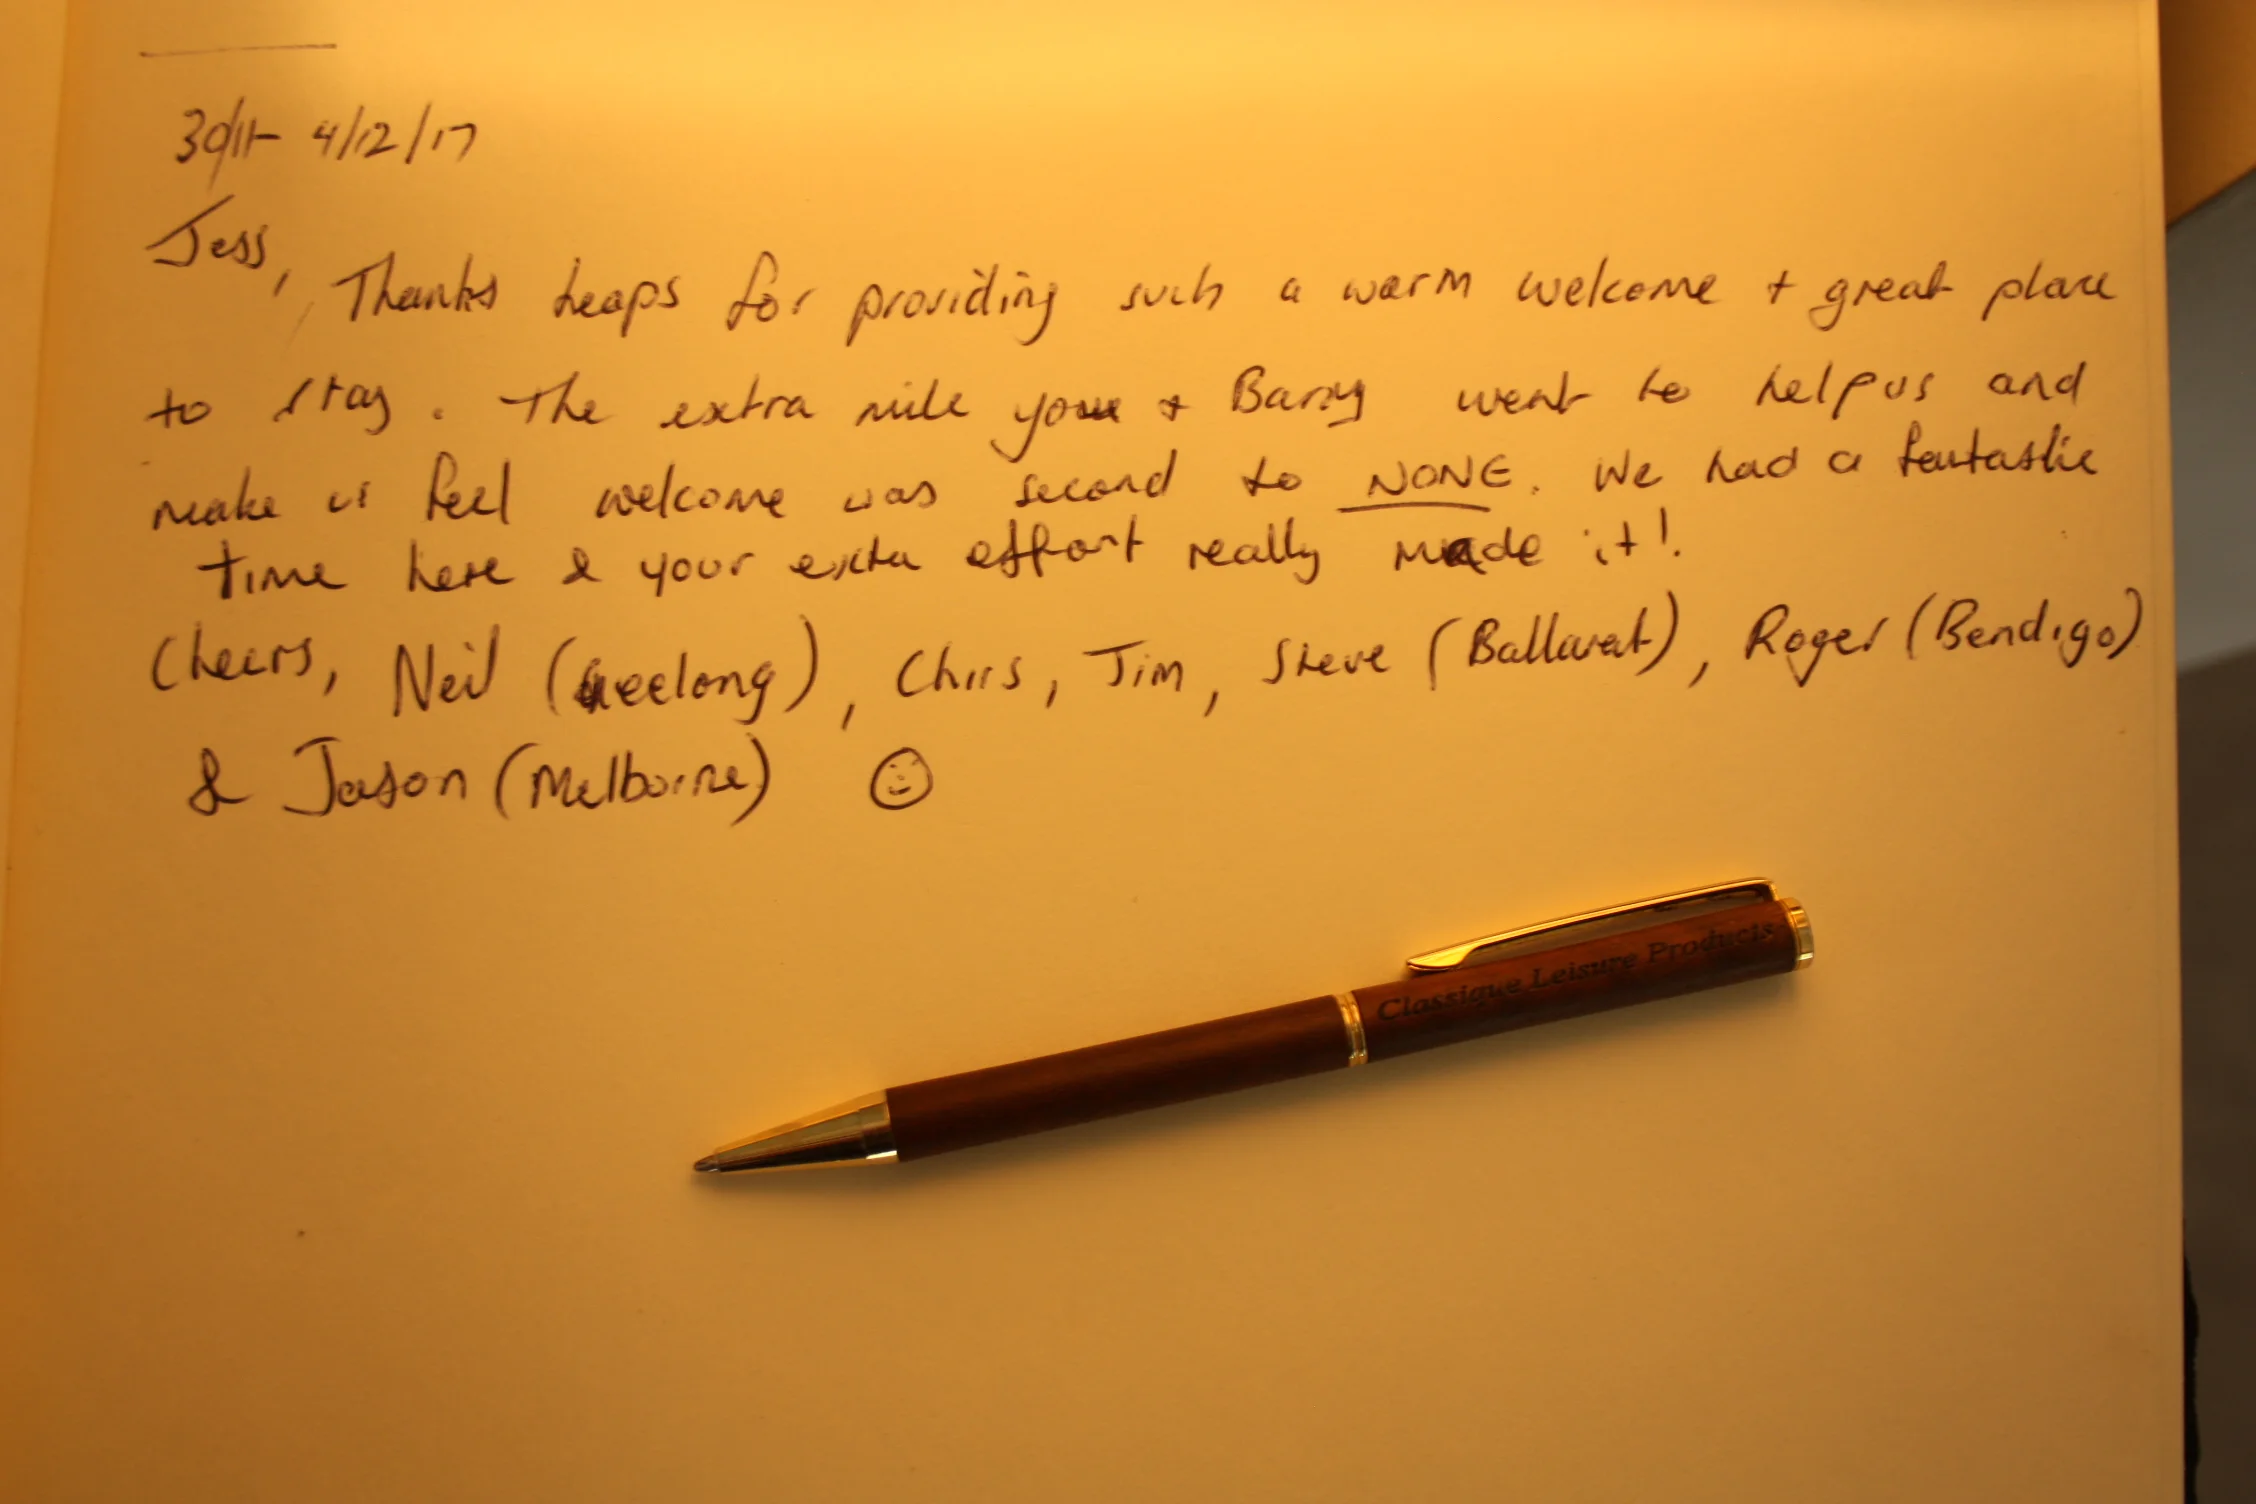 30/11- 4/12/17
Jess,
Thanks heaps for providing such a warm welcome + great place
to stay. The extra mile you + Barry went to help us and
make us feel welcome was second to NONE. We had a fantastic
time here & your extra effort really made it!
Cheers, Neil (Geelong), Chris, Jim, Steve (Ballarat), Roger (Bendigo)
& Jason (Melborne)
Classique Leisure Products